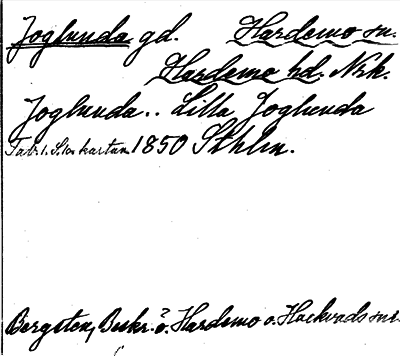 Joglunda gd. Hardemo sn.
Hardemo hd. Nrk.
Joglunda.. Lilla Joglunda
1850 Sthlm.
Bergsten, Beskr. ö. Hardemo o. Hackvads sn:r